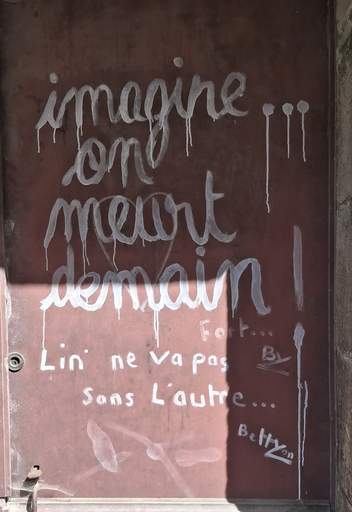 imagine...
on
meurt
demain!
Fort...
Lin' ne va pas
By
sans L'autre...
Betty
on